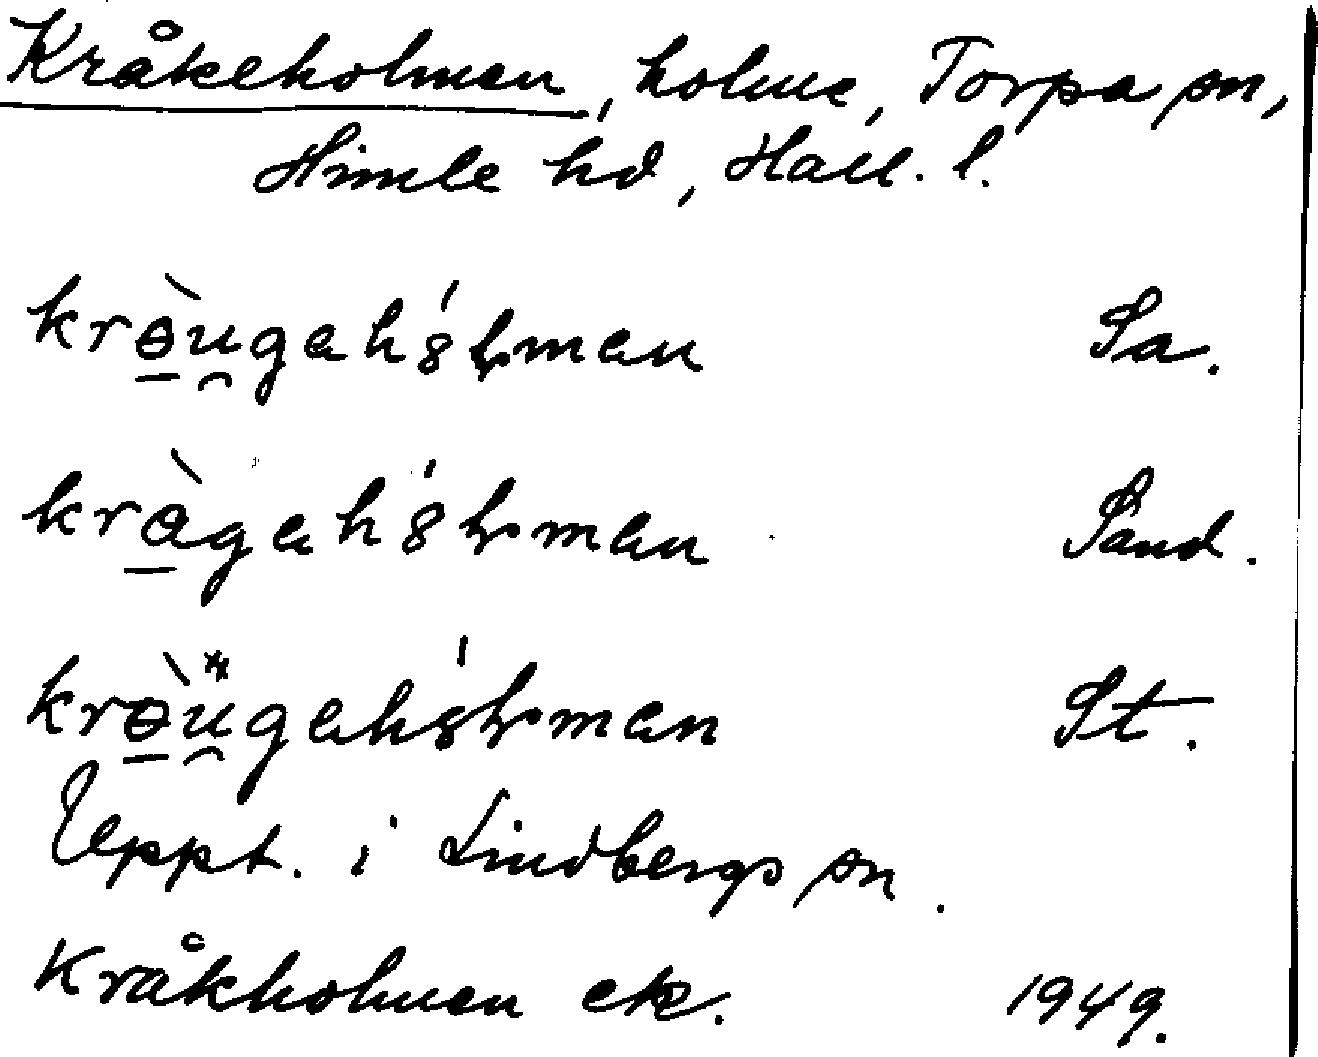 Kråkeholmen, holme, Torpa sn,
Himle hd, Hall. l.
krɵ̀u̯gahólmen Sa.
kràgahólmen Sand.
krɵ̀u̯gahólmen St.
Uppt. i Lindbergs sn.
Kråkholmen ek. 1949.